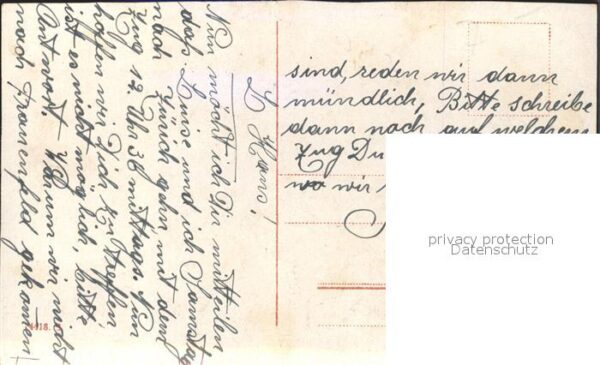 L Hans!
Nun möcht ich Dir mitteilen
das Luise und ich Samstag
nach Zürich gehn mit dem
Zug 12 Uhr 36 mittags. Nun
hoffen wir Dich zu treffen,
ist es nicht möglich, bitte
Antwort. Warum wir nicht
nach Frauenfeld gekommen
sind, reden wir dann
mündlich, Bitte schreibe
dann noch auf welchem
Zug Du
wo wir
privacy protection
Datenschutz